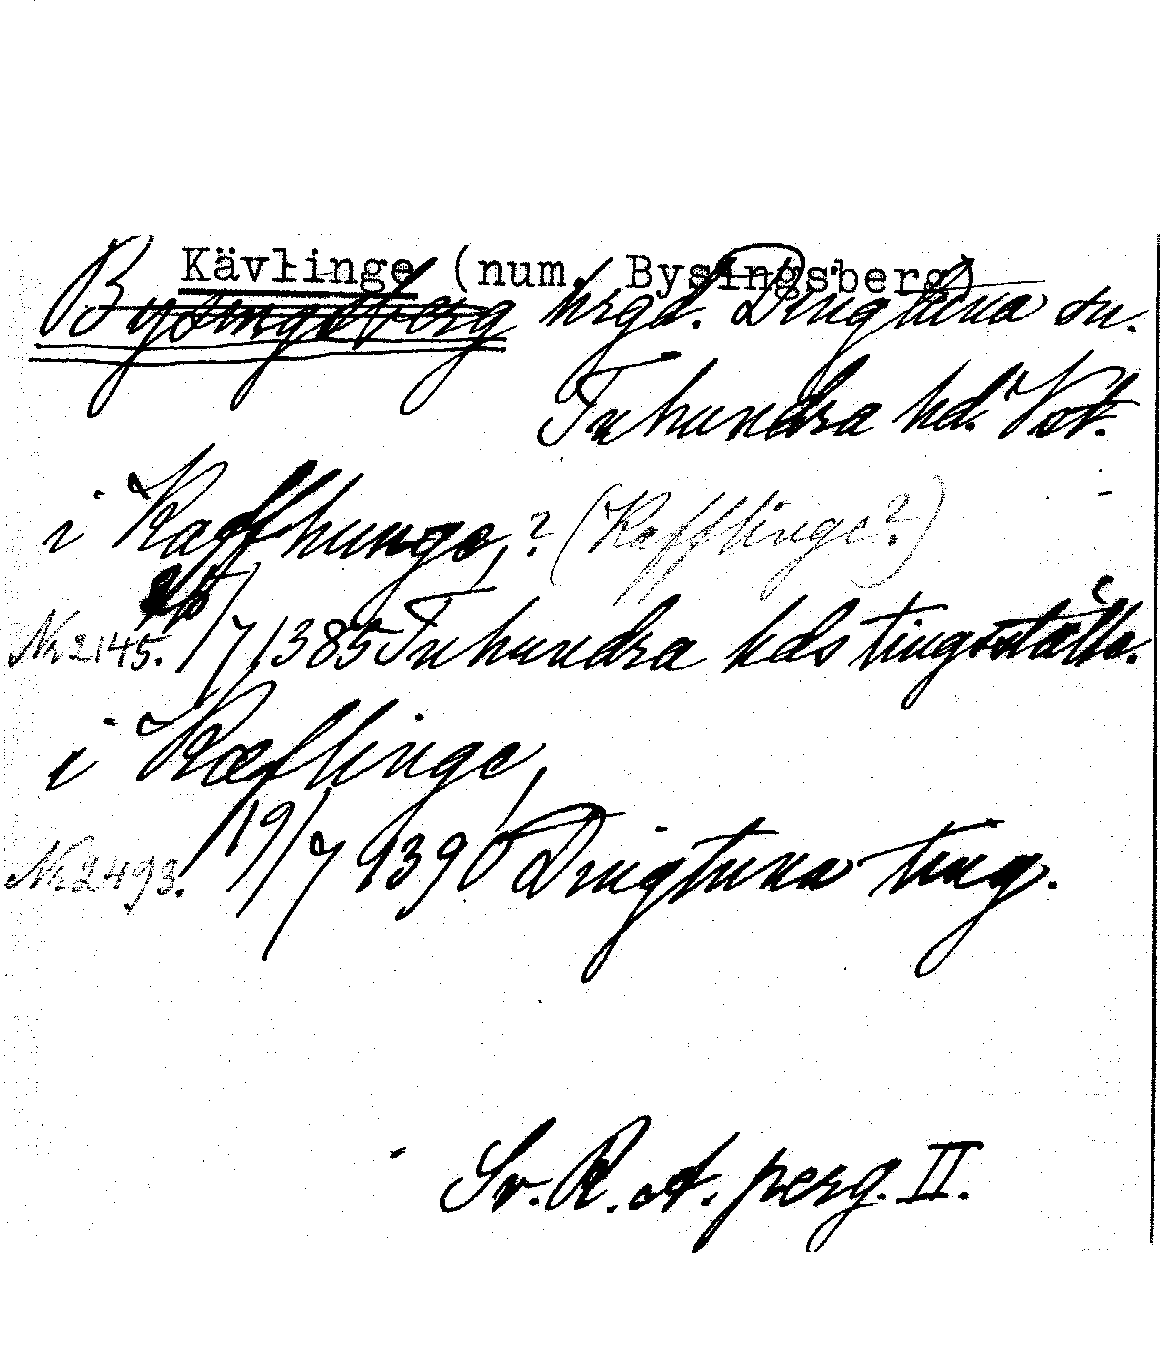 Kävlinge (num. Bysingsberg)
Bysingsberg hrgd. Dingtuna sn.
Tuhundra hd. Vst.
i Kaffhunge,? (Kafflinge?)
Nr 2145. /7 1385 Tuhundra hds tingsställe.
i Kæflinge,
Nr 2493. 19/7 1390 Dingtuna ting.
Sv. R. A. perg. II.